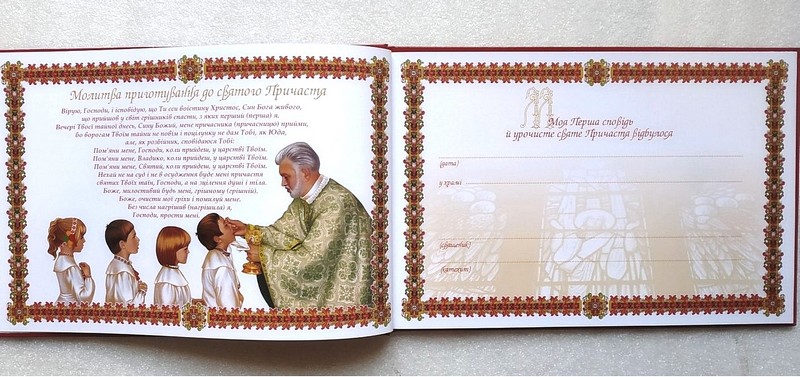 Молитва приготування до святого Причастя
Вірую, Господи, і ісповідую, що Ти єси воістину Христос, Син Бога живого,
що прийшов у світ грішників спасти, з яких перший (перша) я.
Вечері Твоєї тайної днесь, Сину Божий, мене причасника (причасницю) прийми,
бо ворогам Твоїм тайни не повім і поцілунку не дам Тобі, як Юда,
але, як розбійник, сповідаюся Тобі:
Пом'яни мене, Господи, коли прийдеш, у царстві Твоїм.
Пом'яни мене, Владико, коли прийдеш, у царстві Твоїм.
Пом'яни мене, Святий, коли прийдеш, у царстві Твоїм.
Нехай не на суд і не в осудження буде мені причастя
святих Твоїх таїн, Господи, а на зцілення душі і тіла.
Боже, милостивий будь мені, грішному (грішній).
Боже, очисти мої гріхи і помилуй мене.
Без числа нагрішив (нагрішила) я,
Господи, прости мені.
Моя Перша сповідь
й урочисте святе Причастя відбулося
(дата)
у храмі
(священик)
(катехит)